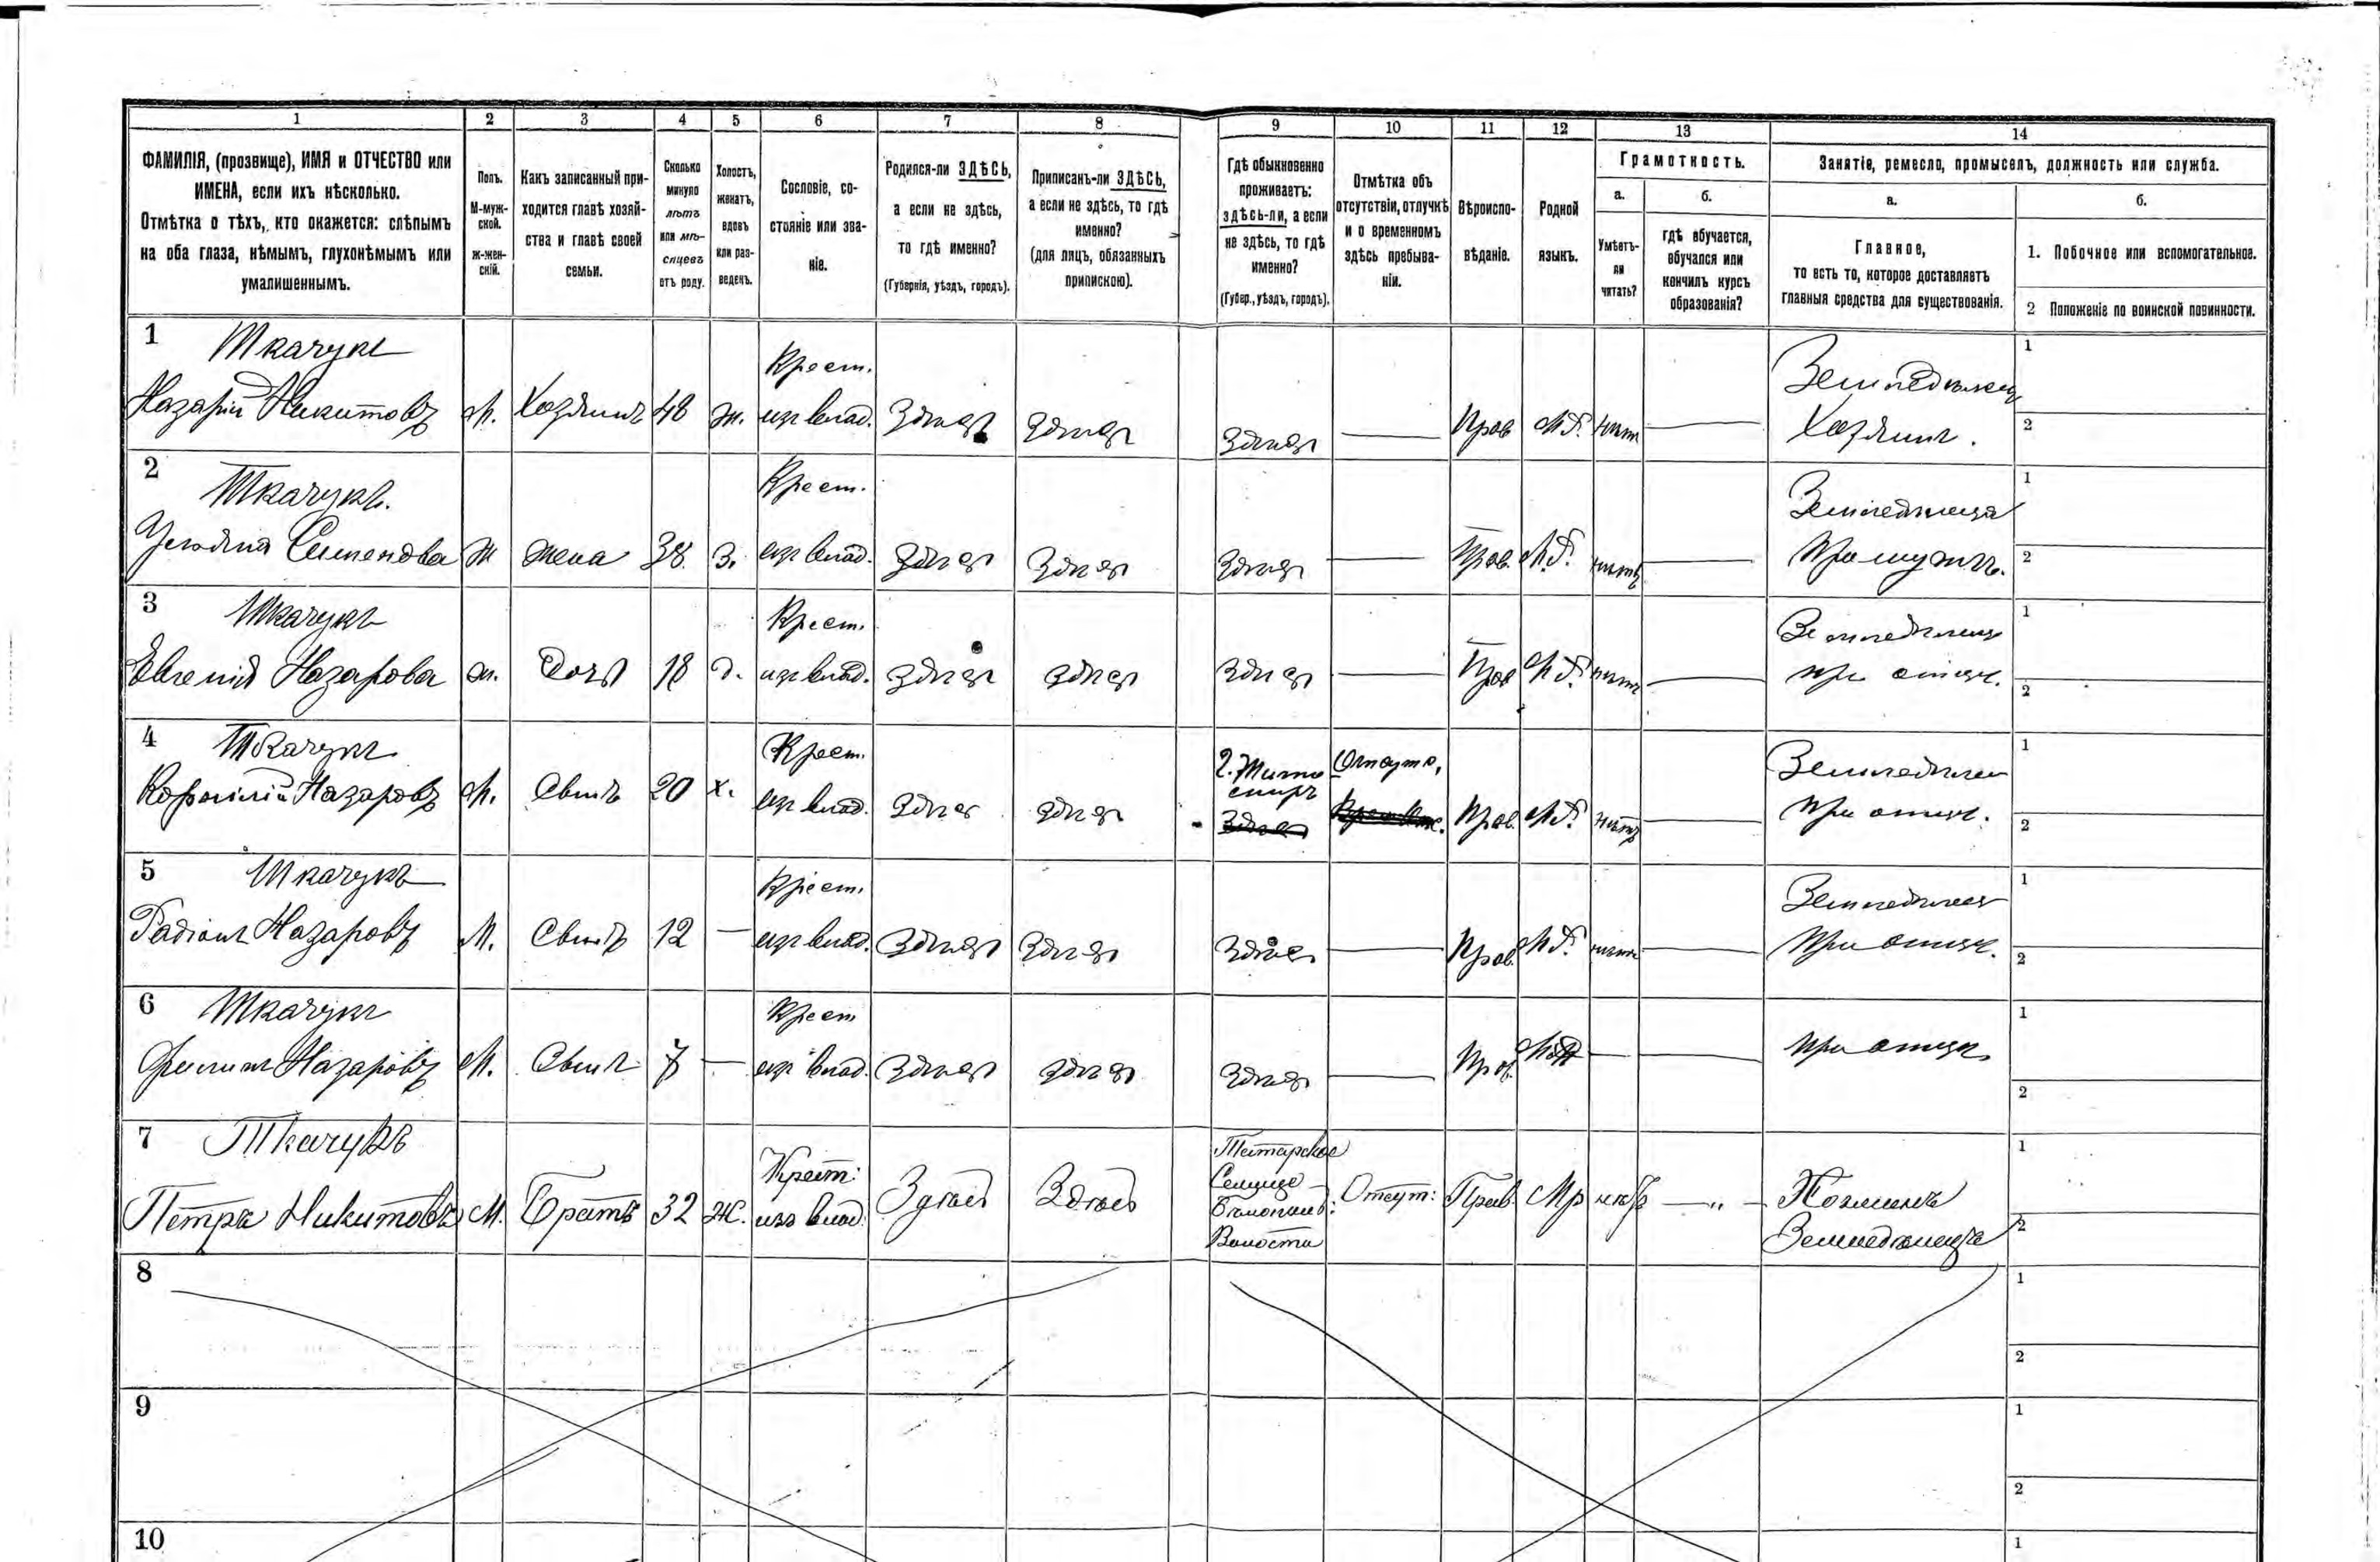 1 2 3 4 5 6 7 8 9 10 11 12 13 14
ФАМИЛІЯ, (прозвище), ИМЯ и ОТЧЕСТВО или
ИМЕНА, если ихъ нѣсколько.
Отмѣтка о тѣхъ, кто окажется: слѣпымъ
на оба глаза, нѣмымъ, глухонѣмымъ или
умалишеннымъ.
Полъ.
М-муж-
ской.
ж-жен-
скій.
Какъ записанный при-
ходится главѣ хозяй-
ства и главѣ своей
семьи.
Сколько
минуло
лѣтъ
или мѣ-
сяцевъ
отъ роду.
Холостъ,
женатъ,
вдовъ
или раз-
веденъ.
Сословіе, со-
стояніе или зва-
ніе.
Родился-ли ЗДѢСЬ,
а если не здѣсь,
то гдѣ именно?
(Губернія, уѣздъ, городъ).
Приписанъ-ли ЗДѢСЬ,
а если не здѣсь, то гдѣ
именно?
(для лицъ, обязанныхъ
припискою).
Гдѣ обыкновенно
проживаетъ:
здѣсь-ли, а если
не здѣсь, то гдѣ
именно?
(Губер., уѣздъ, городъ).
Отмѣтка объ
отсутствіи, отлучкѣ
и о временномъ
здѣсь пребыва-
ніи.
Вѣроиспо-
вѣданіе.
Родной
языкъ.
Грамотность.
а.
Умѣетъ-
ли
читать?
б.
гдѣ обучается,
обучался или
кончилъ курсъ
образованія?
Занятіе, ремесло, промыселъ, должность или служба.
а.
Главное,
то есть то, которое доставляетъ
главныя средства для существованія.
б.
1. Побочное или вспомогательное.
2 Положеніе по воинской повинности.
1 Ткачукъ Крест. Земледѣлец 1
Назарій Никитовъ М. Хозяинъ 48 ж. изъ влад. Здѣсь Здѣсь Здѣсь — Прав М.Р. нѣтъ — Хозяинъ. 2
2 Ткачукъ. Крест. 1
Ульяна Семенова Ж жена 38. З. изъ влад. Здѣсь Здѣсь Здѣсь — Прав. М.Р. нѣтъ — При мужѣ. 2
3 Ткачукъ Крест. 1
Евгенія Назарова ж. Дочь 18 д. изъ влад. Здѣсь Здѣсь Здѣсь — Прав М.Р. нѣтъ — при отцѣ. 2
4 Ткачукъ Крест. г. Жито Отсут. 1
миръ
Назаровъ М. Сынъ 20 х. изъ влад. Здѣсь Здѣсь Здѣсь Прав. М.Р. нѣтъ — При отцѣ. 2
5 Ткачукъ Крест. 1
Радіонъ Назаровъ М. Сынъ 12 — изъ влад. Здѣсь Здѣсь Здѣсь — Прав. М.Р. нѣтъ — При отцѣ. 2
6 Ткачукъ Крест 1
Филипъ Назаровъ М. Сынъ 7 — изъ влад. Здѣсь Здѣсь Здѣсь — Прав. М.Р. — — При отцѣ 2
7 Ткачукъ Крест: 1
Петръ Никитовъ М. Братъ 32 Ж. изъ влад. Здѣсь Здѣсь Селище Отсут: Прав. Мр нѣтъ — „ — Хозяинъ
Волости 2
8 1
2
9 1
2
10 1